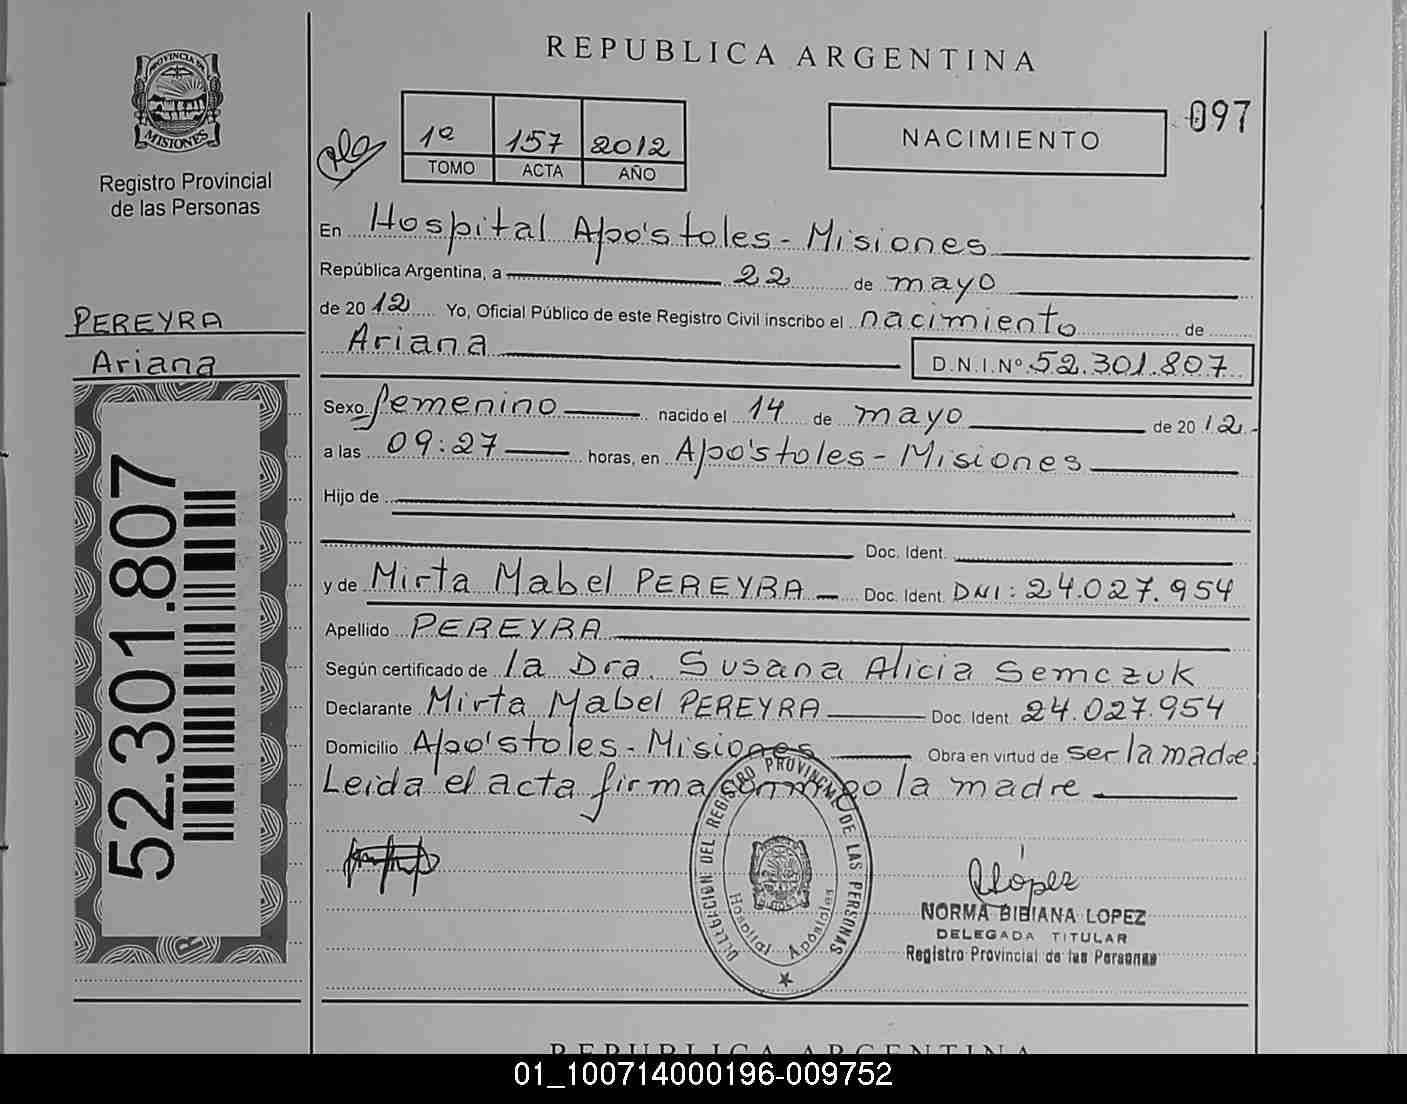 REPUBLICA ARGENTINA
PROVINCIA DE
MISIONES
Registro Provincial
de las Personas
1º 157 2012
TOMO ACTA AÑO
NACIMIENTO
097
En Hospital Apo's toles - Misiones
República Argentina, a 22 de mayo
de 20 12 Yo, Oficial Público de este Registro Civil inscribo el nacimiento de
Ariana D.N.I.Nº 52.301.807
PEREYRA
Ariana
52.301.807
Sexo femenino nacido el 14 de mayo de 20 12
a las 09:27 horas, en Apo's toles - Misiones
Hijo de
Doc. Ident.
y de Mirta Mabel PEREYRA Doc. Ident. DNI: 24.027.954
Apellido PEREYRA
Según certificado de la Dra. Susana Alicia Semczuk
Declarante Mirta Mabel PEREYRA Doc. Ident. 24.027.954
Domicilio Apo's toles - Misiones Obra en virtud de ser la madre.
Leida el acta firma conmigo la madre
DELEGACION DEL REGISTRO PROVINCIAL DE LAS PERSONAS
Hospital Apóstoles
RLópez
NORMA BIBIANA LOPEZ
DELEGADA TITULAR
Registro Provincial de las Personas
REPUBLICA ARGENTINA
01_100714000196-009752